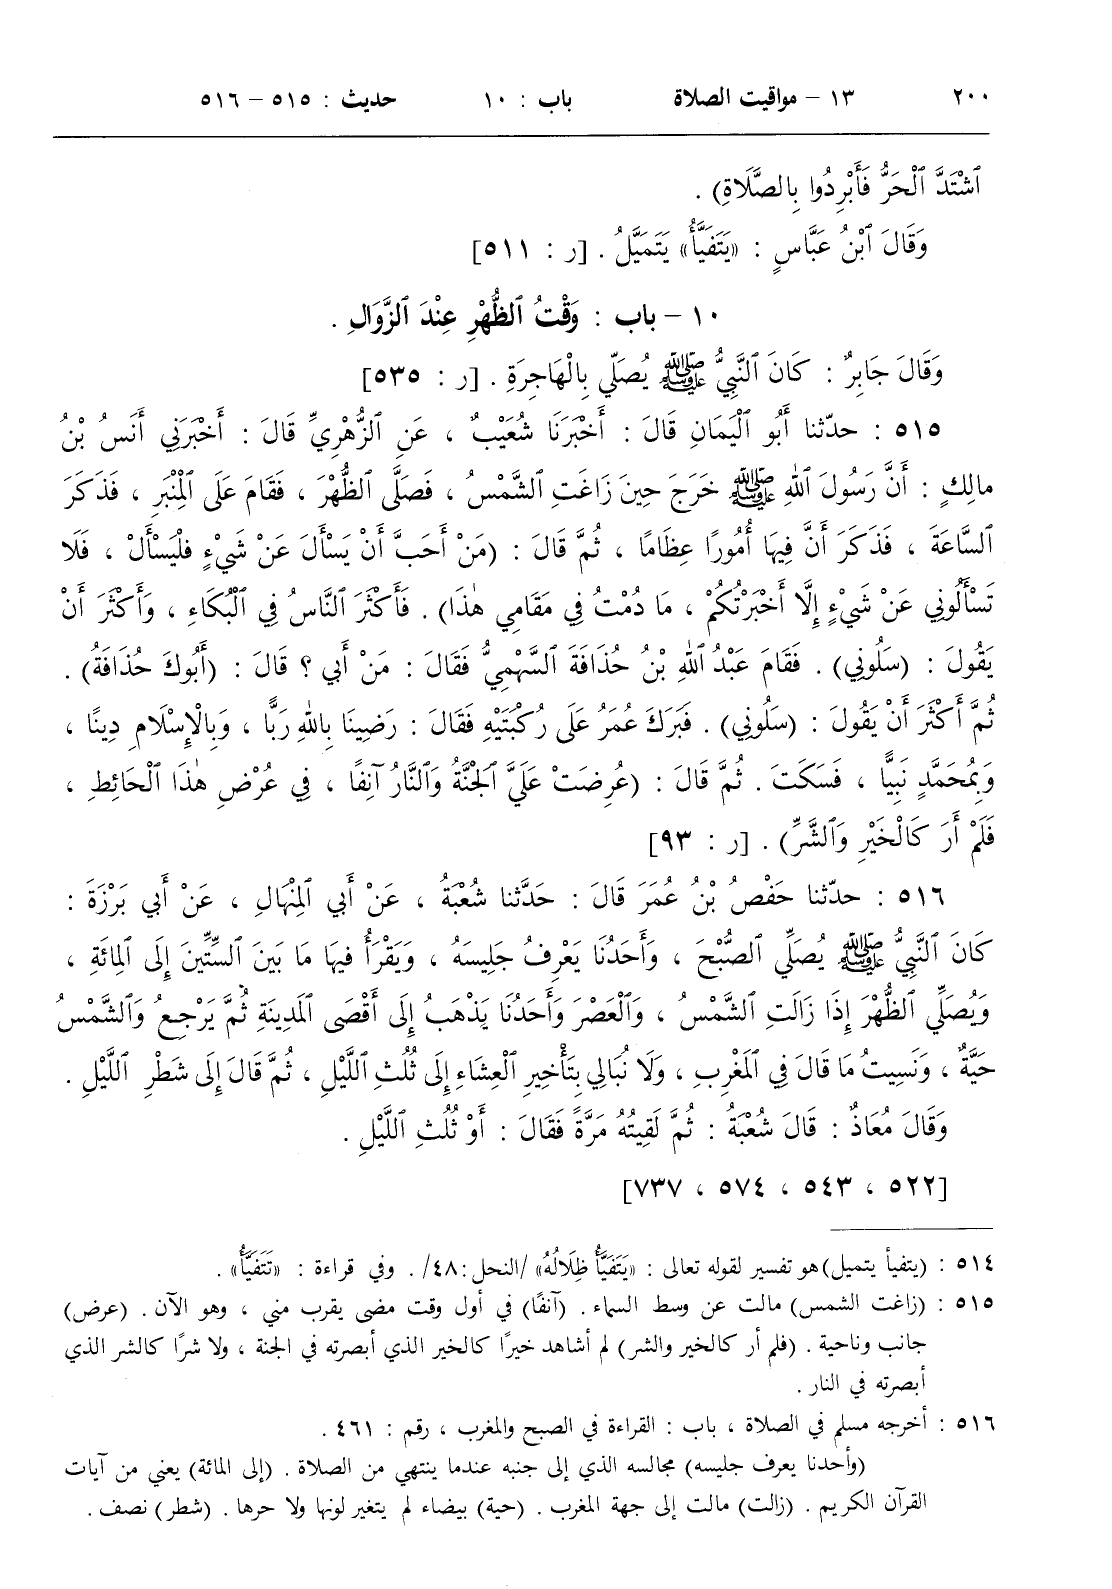 ٢٠٠ ١٣ – مواقيت الصلاة باب : ١٠ حديث : ٥١٥ – ٥١٦
ٱشْتَدَّ ٱلْحَرُّ فَأَبْرِدُوا بِالصَّلَاةِ) .
وَقَالَ ٱبْنُ عَبَّاسٍ : «يَتَفَيَّأُ» يَتَمَيَّلُ . [ر : ٥١١]
١٠ – باب : وَقْتُ ٱلظُّهْرِ عِنْدَ ٱلزَّوَالِ .
وَقَالَ جَابِرٌ : كَانَ ٱلنَّبِيُّ ﷺ يُصَلِّي بِالْهَاجِرَةِ . [ر : ٥٣٥]
٥١٥ : حدّثنا أَبُو ٱلْيَمَانِ قَالَ : أَخْبَرَنَا شُعَيْبٌ ، عَنِ ٱلزُّهْرِيِّ قَالَ : أَخْبَرَنِي أَنَسُ بْنُ
مالِكٍ : أَنَّ رَسُولَ ٱللهِ ﷺ خَرَجَ حِينَ زَاغَتِ ٱلشَّمْسُ ، فَصَلَّى ٱلظُّهْرَ ، فَقَامَ عَلَى ٱلْمِنْبَرِ ، فَذَكَرَ
ٱلسَّاعَةَ ، فَذَكَرَ أَنَّ فِيهَا أُمُورًا عِظَامًا ، ثُمَّ قَالَ : (مَنْ أَحَبَّ أَنْ يَسْأَلَ عَنْ شَيْءٍ فَلْيَسْأَلْ ، فَلَا
تَسْأَلُونِي عَنْ شَيْءٍ إِلَّا أَخْبَرْتُكُمْ ، مَا دُمْتُ فِي مَقَامِي هٰذَا) . فَأَكْثَرَ ٱلنَّاسُ فِي ٱلْبُكَاءِ ، وَأَكْثَرَ أَنْ
يَقُولَ : (سَلُونِي) . فَقَامَ عَبْدُ ٱللهِ بْنُ حُذَافَةَ ٱلسَّهْمِيُّ فَقَالَ : مَنْ أَبِي ؟ قَالَ : (أَبُوكَ حُذَافَةُ) .
ثُمَّ أَكْثَرَ أَنْ يَقُولَ : (سَلُونِي) . فَبَرَكَ عُمَرُ عَلَى رُكْبَتَيْهِ فَقَالَ : رَضِينَا بِاللهِ رَبًّا ، وَبِالْإِسْلَامِ دِينًا ،
وَبِمُحَمَّدٍ نَبِيًّا ، فَسَكَتَ . ثُمَّ قَالَ : (عُرِضَتْ عَلَيَّ ٱلْجَنَّةُ وَٱلنَّارُ آنِفًا ، فِي عُرْضِ هٰذَا ٱلْحَائِطِ ،
فَلَمْ أَرَ كَالْخَيْرِ وَٱلشَّرِّ) . [ر : ٩٣]
٥١٦ : حدّثنا حَفْصُ بْنُ عُمَرَ قَالَ : حَدَّثنا شُعْبَةُ ، عَنْ أَبِي ٱلْمِنْهَالِ ، عَنْ أَبِي بَرْزَةَ :
كَانَ ٱلنَّبِيُّ ﷺ يُصَلِّي ٱلصُّبْحَ ، وَأَحَدُنَا يَعْرِفُ جَلِيسَهُ ، وَيَقْرَأُ فِيهَا مَا بَيْنَ ٱلسِّتِّينَ إِلَى ٱلْمِائَةِ ،
وَيُصَلِّي ٱلظُّهْرَ إِذَا زَالَتِ ٱلشَّمْسُ ، وَٱلْعَصْرَ وَأَحَدُنَا يَذْهَبُ إِلَى أَقْصَى ٱلْمَدِينَةِ ثُمَّ يَرْجِعُ وَٱلشَّمْسُ
حَيَّةٌ ، وَنَسِيتُ مَا قَالَ فِي ٱلْمَغْرِبِ ، وَلَا نُبَالِي بِتَأْخِيرِ ٱلْعِشَاءِ إِلَى ثُلُثِ ٱللَّيْلِ ، ثُمَّ قَالَ إِلَى شَطْرِ ٱللَّيْلِ .
وَقَالَ مُعَاذٌ : قَالَ شُعْبَةُ : ثُمَّ لَقِيتُهُ مَرَّةً فَقَالَ : أَوْ ثُلُثِ ٱللَّيْلِ .
[٥٢٢ ، ٥٤٣ ، ٥٧٤ ، ٧٣٧]
٥١٤ : (يتفيأ يتميل) هو تفسير لقوله تعالى : «يَتَفَيَّأُ ظِلَالُهُ» /النحل:٤٨/ . وفي قراءة : «تَتَفَيَّأُ» .
٥١٥ : (زاغت الشمس) مالت عن وسط السماء . (آنفًا) في أول وقت مضى يقرب مني ، وهو الآن . (عرض)
جانب وناحية . (فلم أر كالخير والشر) لم أشاهد خيرًا كالخير الذي أبصرته في الجنة ، ولا شرًا كالشر الذي
أبصرته في النار .
٥١٦ : أخرجه مسلم في الصلاة ، باب : القراءة في الصبح والمغرب ، رقم : ٤٦١ .
(وأحدنا يعرف جليسه) مجالسه الذي إلى جنبه عندما ينتهي من الصلاة . (إلى المائة) يعني من آيات
القرآن الكريم . (زالت) مالت إلى جهة المغرب . (حية) بيضاء لم يتغير لونها ولا حرها . (شطر) نصف .